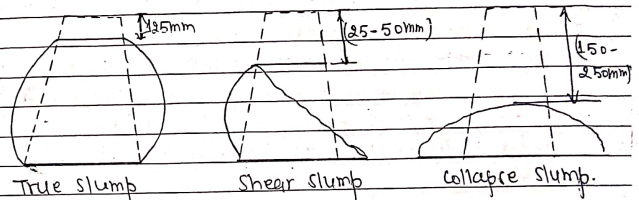 125mm
(25-50mm)
(150-
250mm)
True slump
Shear slump
collapse slump.